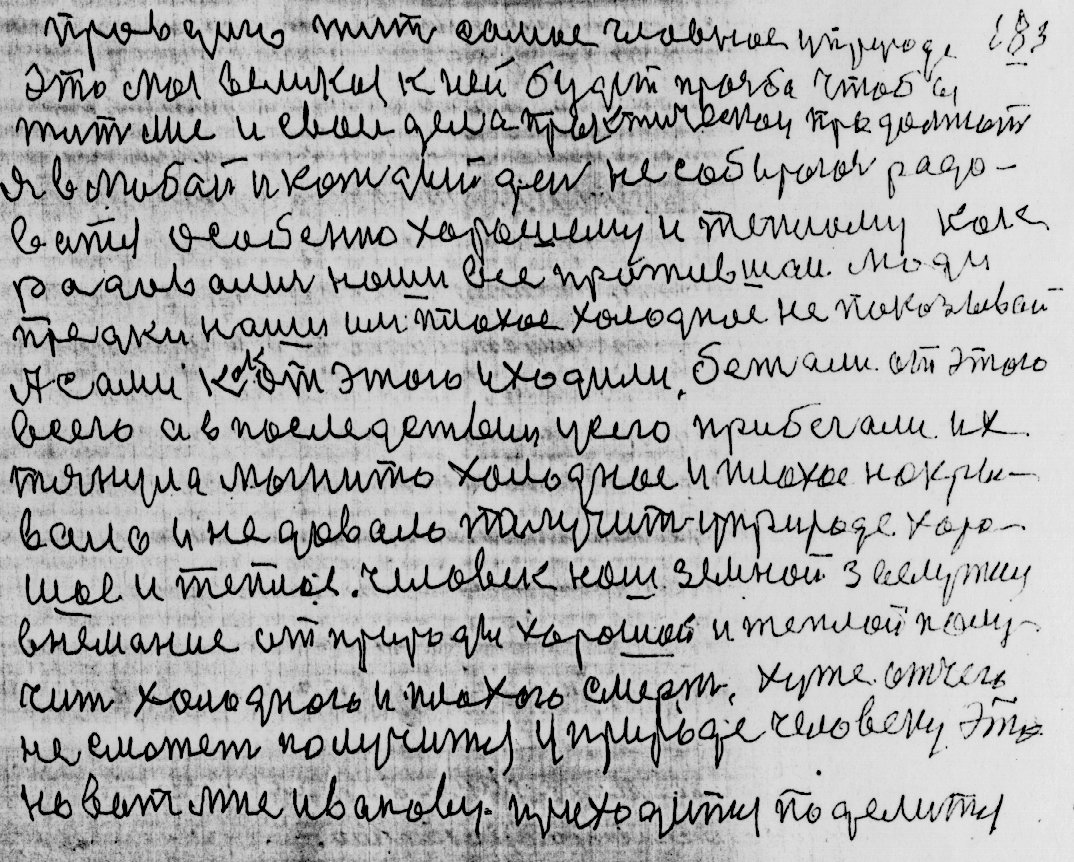 проводит жит самое главное уприроде 183
Это моя великая к ней будит прозба чтобы
жит мне и свои дела практически продолжат
я влюбай и каждай ден несобираюя радо-
ватця особенно хорошему и теплому как
радовалис наши все прожившаи люди
предки наши им плохое холодное не показывай
А сами как от этого уходили. бежали от этого
всего а впоследствии унего прибегали их
тянула магнито холодное и плохое накры-
вало и недовало палучит уприроде харо-
шае и теплое. человек наш земной заслужил
внемание от природы хорошай и теплой полу-
чит холодного и плохого смерт. хуже отчего
несможет получитця уприроде человеку Это
но вот мне иванову приходитця поделитця